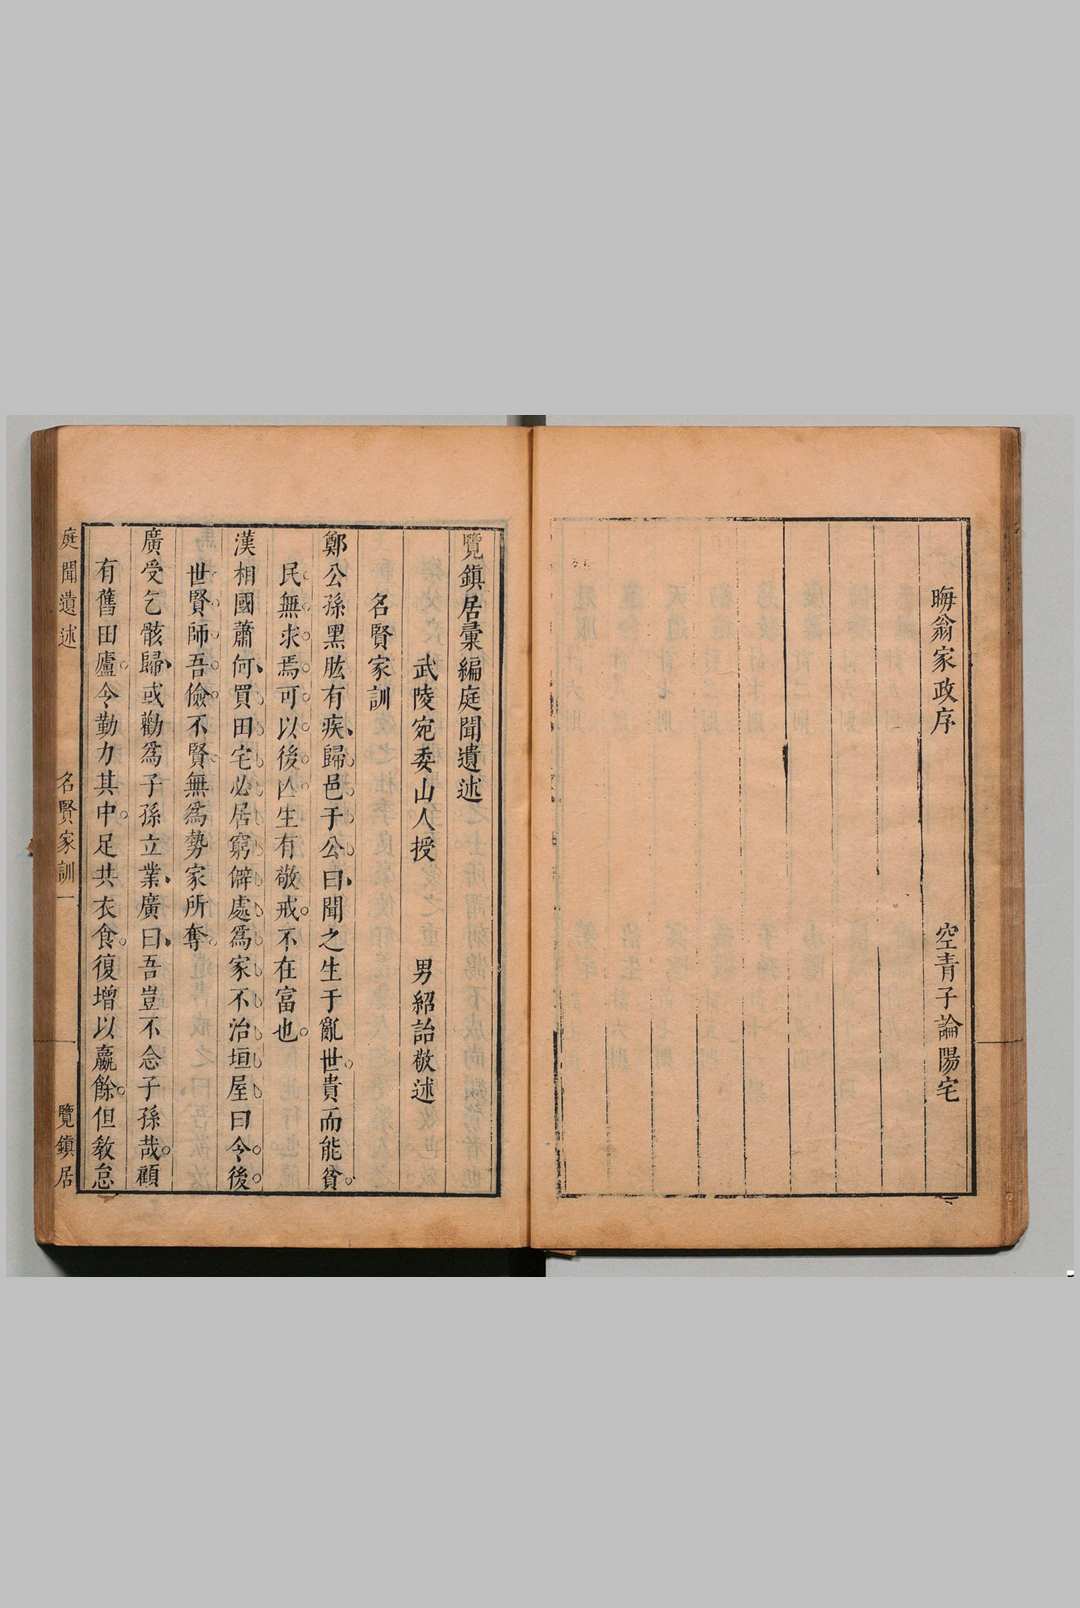 晦翁家政序　空青子論陽宅
覽鎮居彙編庭聞遺述
武陵宛委山人授　男紹詒敬述
名賢家訓
鄭公孫黑肱有疾歸邑于公曰聞之生于亂世貴而能貧
民無求焉可以後亾生有敬戒不在富也
漢相國蕭何買田宅必居窮僻處爲家不治垣屋曰令後
世賢師吾儉不賢無爲勢家所奪
廣受乞骸歸或勸爲子孫立業廣曰吾豈不念子孫哉顧
有舊田廬令勤力其中足共衣食復增以贏餘但敎怠
庭聞遺述　名賢家訓　一　覽鎮居